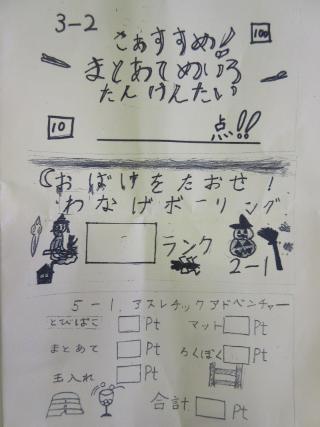 3-2
こぁすすめ!
100
まとあてめいろ
たんけんたい
10
点!!
おばけをたおせ!
わなげボーリング
ランク
2-1
5-1.アスレチックアドベンチャー
とびばこ Pt マット Pt
まとあて Pt ろくぼく Pt
玉入れ Pt
合計 Pt